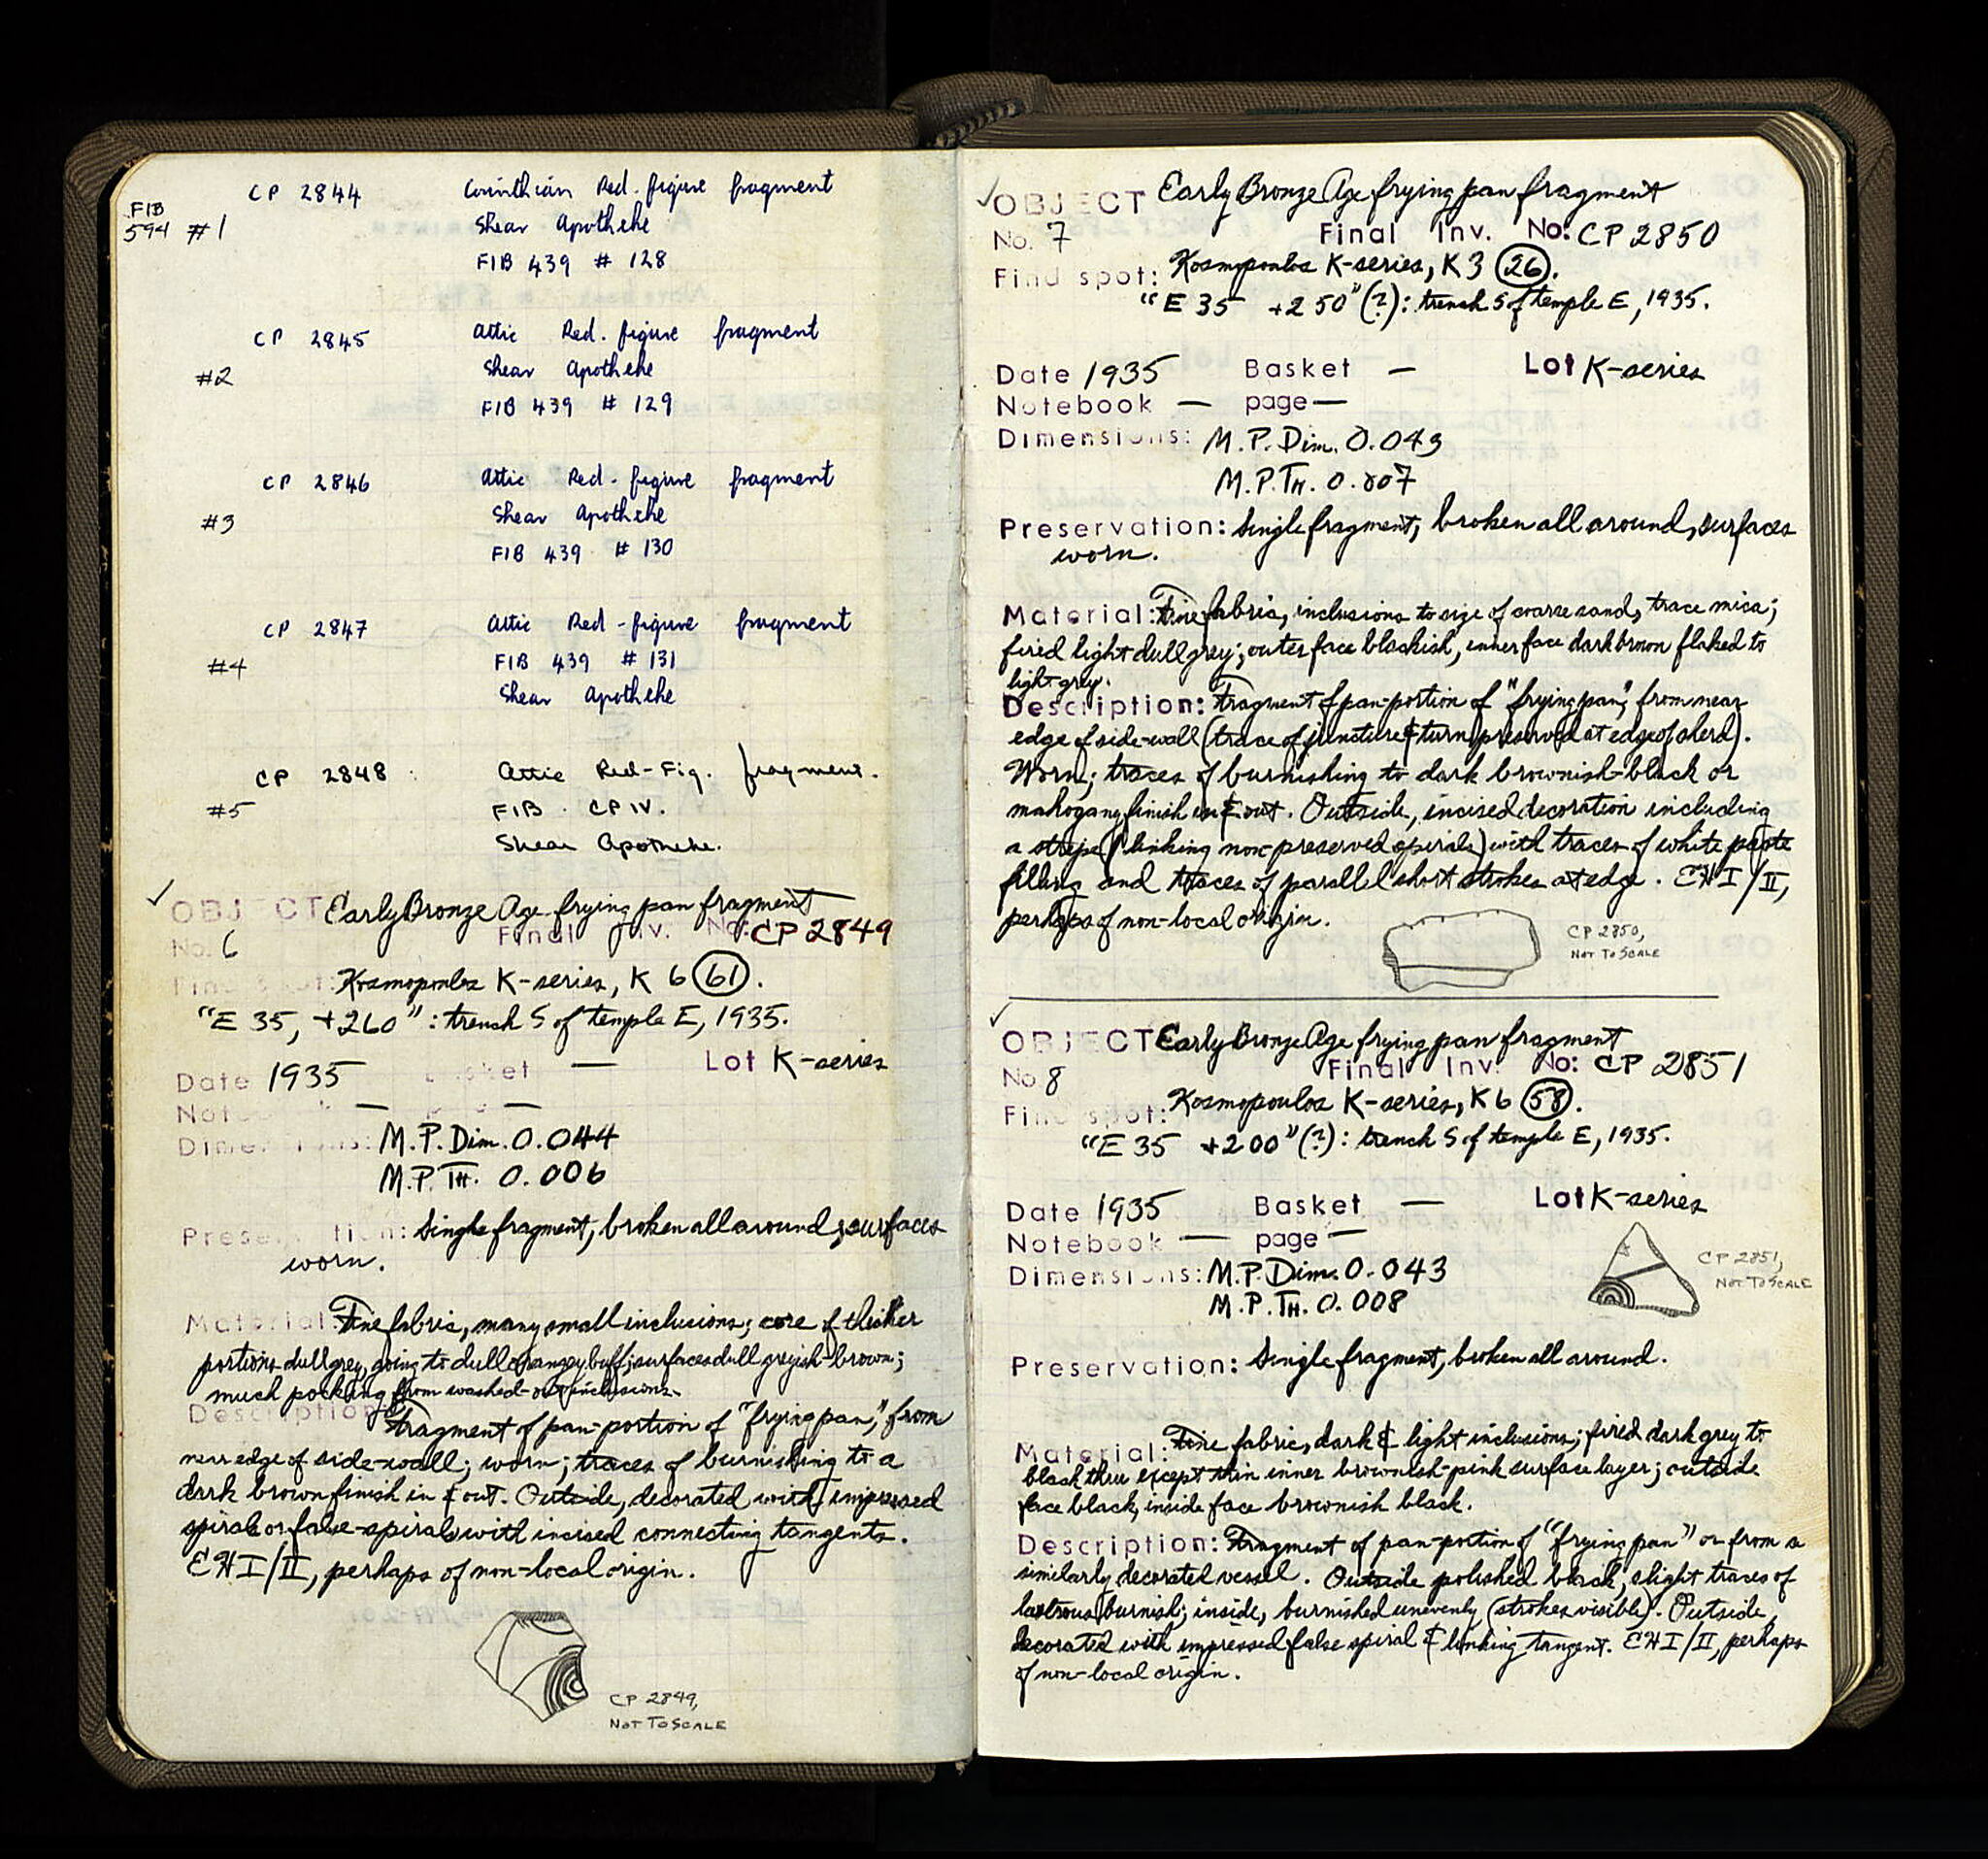 FIB
594 #1
CP 2844 Corinthian Red-figure fragment
Shear Apotheke
FIB 439 # 128
CP 2845 Attic Red-figure fragment
#2 Shear Apotheke
FIB 439 # 129
CP 2846 Attic Red-figure fragment
#3 Shear Apotheke
FIB 439 # 130
CP 2847 Attic Red-figure fragment
#4 FIB 439 # 131
Shear Apotheke
CP 2848 Attic Red-Fig. fragment.
#5 FIB CP IV.
Shear Apotheke.
✓
OBJECT Early Bronze Age frying pan fragment
No. 6 Final Inv. No: CP 2849
Find spot: Kosmopoulos K-series, K 6 (61).
"E 35, +260": trench S of temple E, 1935.
Date 1935 Basket — Lot K-series
Notebook — page —
Dimensions: M.P. Dim. 0.044
M.P. TH. 0.006
Preservation: Single fragment, broken all around, surfaces
worn.
Material: Fine fabric, many small inclusions; core of thicker
portions dull grey, going to dull orangey buff; surfaces dull greyish-brown;
much pocking from washed-out inclusions.
Description: Fragment of pan-portion of "frying pan," from
near edge of side-wall; worn; traces of burnishing to a
dark brown finish in & out. Outside, decorated with impressed
spirals or false-spirals with incised connecting tangents.
EH I/II, perhaps of non-local origin.
CP 2849,
NOT TO SCALE
✓
OBJECT Early Bronze Age frying pan fragment
No. 7 Final Inv. No: CP 2850
Find spot: Kosmopoulos K-series, K 3 (26).
"E 35 +250" (?): trench S of temple E, 1935.
Date 1935 Basket — Lot K-series
Notebook — page —
Dimensions: M.P. Dim. 0.043
M.P. TH. 0.007
Preservation: Single fragment, broken all around, surfaces
worn.
Material: Fine fabric, inclusions to size of coarse sand, trace mica;
fired light dull grey; outer face blackish, inner face dark brown flaked to
light grey.
Description: Fragment of pan-portion of "frying pan," from near
edge of side-wall (trace of juncture & turn preserved at edge of sherd).
Worn; traces of burnishing to dark brownish-black or
mahogany finish in & out. Outside, incised decoration including
a stripe (linking non-preserved spirals) with traces of white paste
filling and traces of parallel short strokes at edge. EH I/II,
perhaps of non-local origin.
CP 2850,
NOT TO SCALE
✓
OBJECT Early Bronze Age frying pan fragment
No. 8 Final Inv. No: CP 2851
Find spot: Kosmopoulos K-series, K 6 (58).
"E 35 +200" (?): trench S of temple E, 1935.
Date 1935 Basket — Lot K-series
Notebook — page —
Dimensions: M.P. Dim. 0.043
M.P. TH. 0.008
CP 2851,
NOT TO SCALE
Preservation: Single fragment, broken all around.
Material: Fine fabric, dark & light inclusions; fired dark grey to
black thru except thin inner brownish-pink surface layer; outside
face black, inside face brownish black.
Description: Fragment of pan-portion of "frying pan" or from a
similarly decorated vessel. Outside polished black, slight traces of
lustrous burnish; inside, burnished unevenly (strokes visible). Outside,
decorated with impressed false spiral & linking tangent. EH I/II, perhaps
of non-local origin.